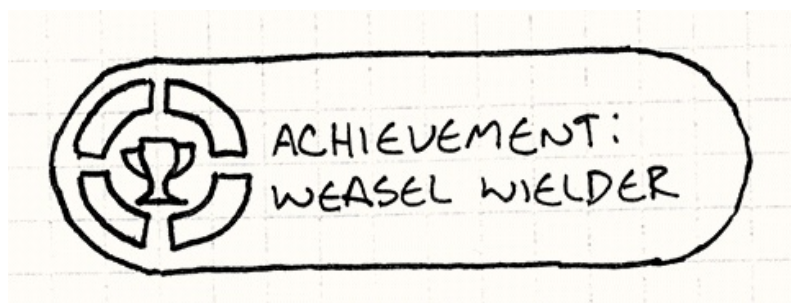 ACHIEVEMENT:
WEASEL WIELDER